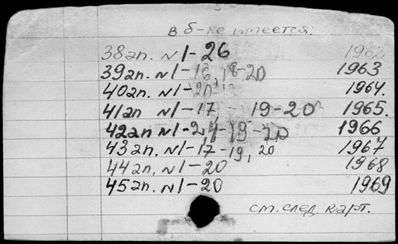 в б-ке имеется.
38ап. №1-26 1962
39ап. №1-16, 18-20 1963
40ап. №1-20 1964.
41ап №1-17, 19-20 1965.
42ап №1-2, 4-19-20 1966
43ап. №1-17-19, 20 1967
44ап. №1-20 1968
45ап. №1-20 1969
см. след. карт.